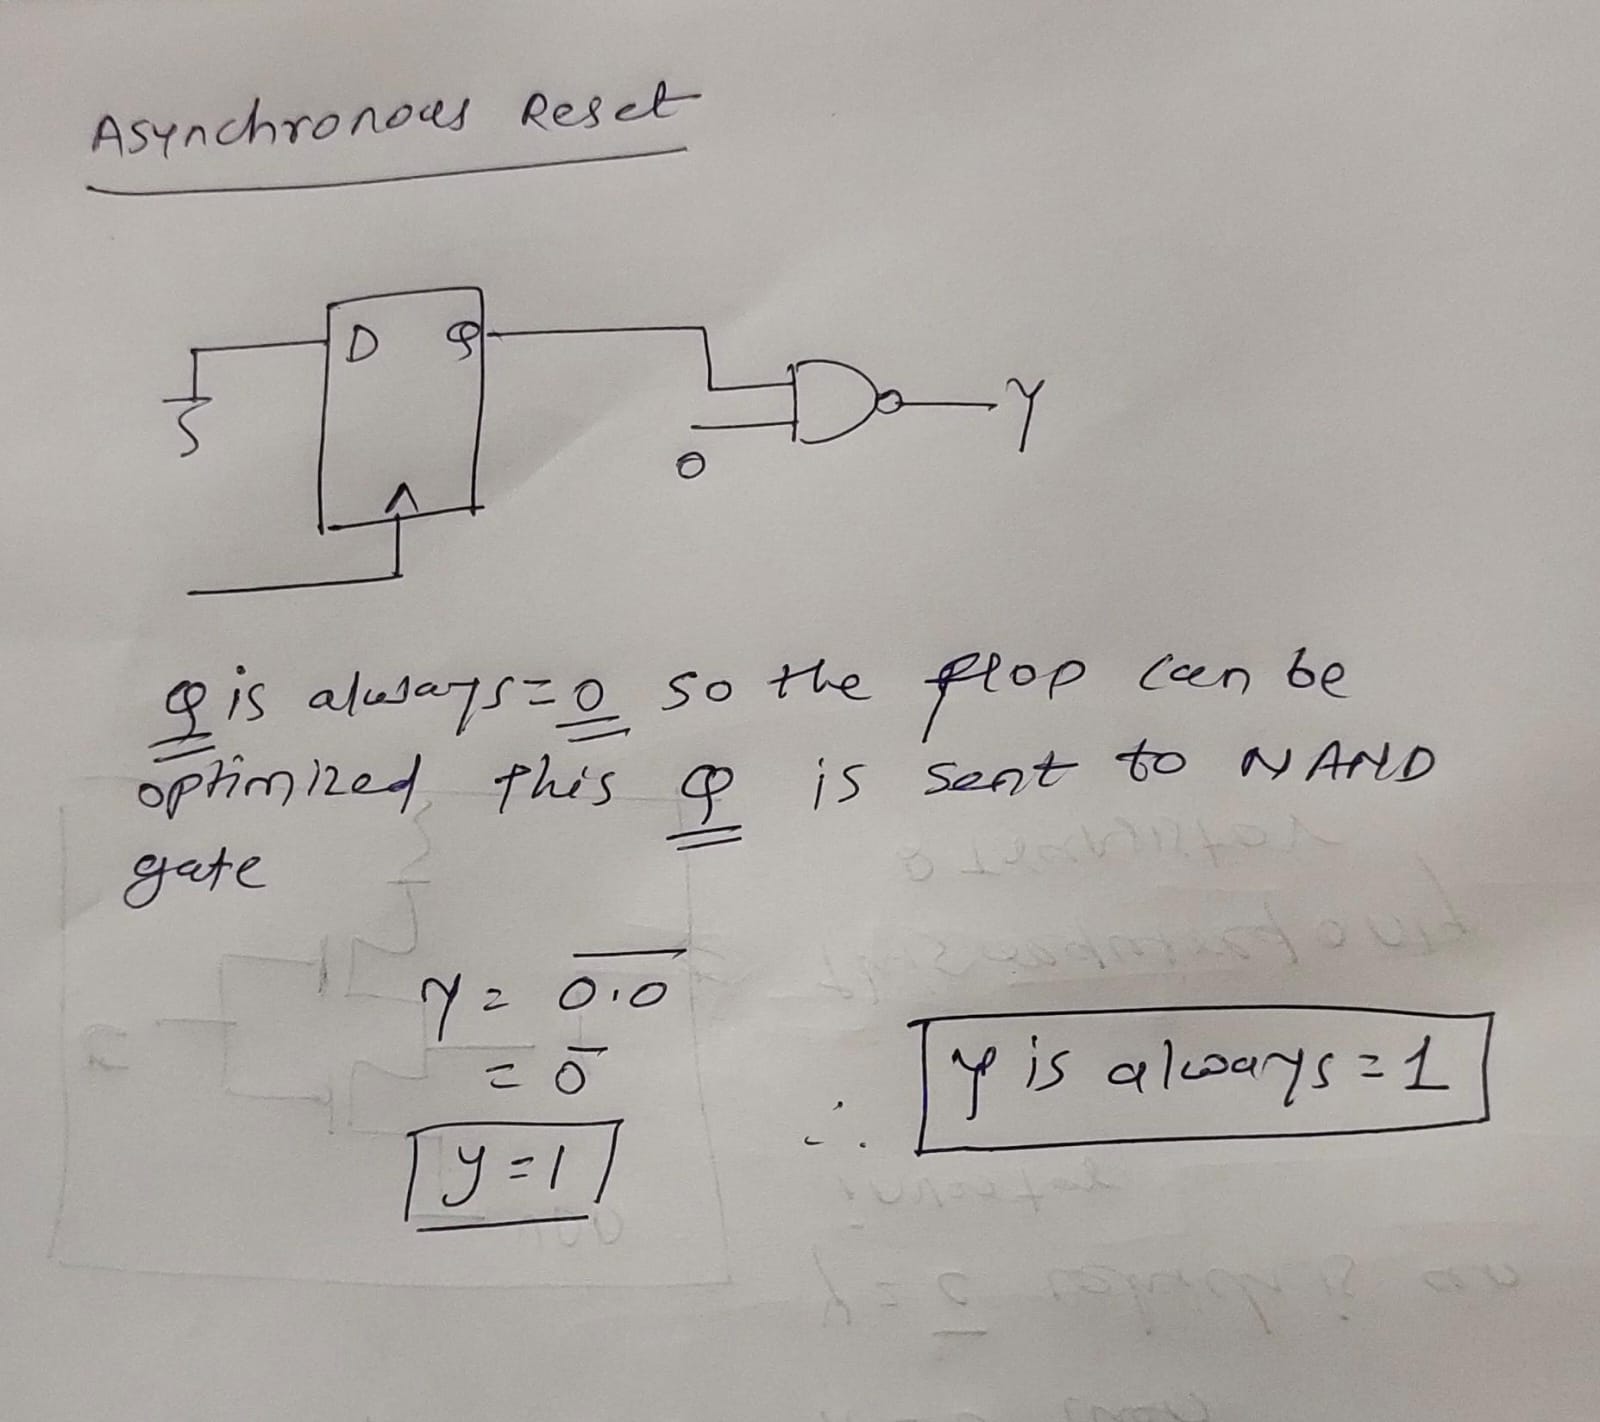 Asynchronous Reset
D Q
Y
0
Q is always = 0 so the flop can be
optimized this Q is sent to NAND
gate
Y = \overline{0.0}
= \overline{0}
y = 1
∴ y is always = 1